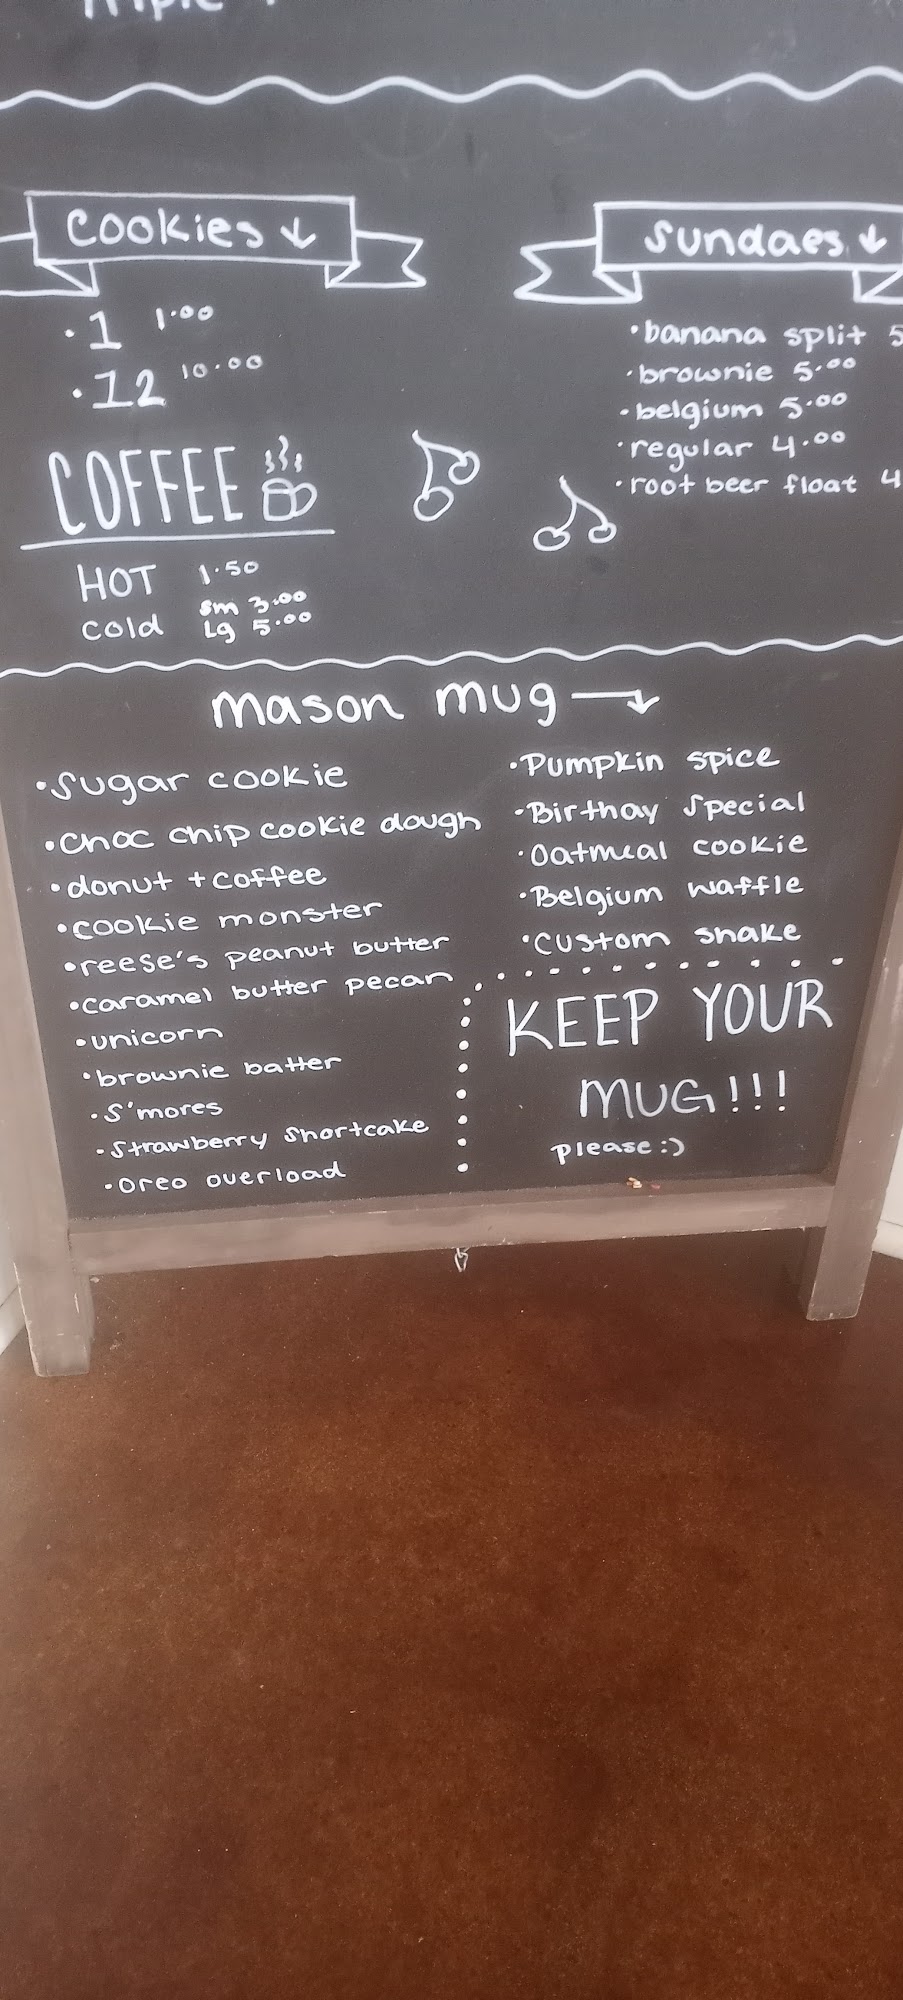 Cookies ↓
·1 1.00
·12 10.00
COFFEE
HOT 1.50
Cold sm 3.00
Lg 5.00
Sundaes ↓
·banana split 5
·brownie 5.00
·belgium 5.00
·regular 4.00
·root beer float 4
mason mug →
·Sugar cookie
·Choc chip cookie dough
·donut + coffee
·cookie monster
·reese's peanut butter
·caramel butter pecan
·unicorn
·brownie batter
·S'mores
·Strawberry Shortcake
·Oreo overload
·Pumpkin spice
·Birthay Special
·Oatmeal cookie
·Belgium waffle
·Custom shake
KEEP YOUR
MUG!!!
please :)